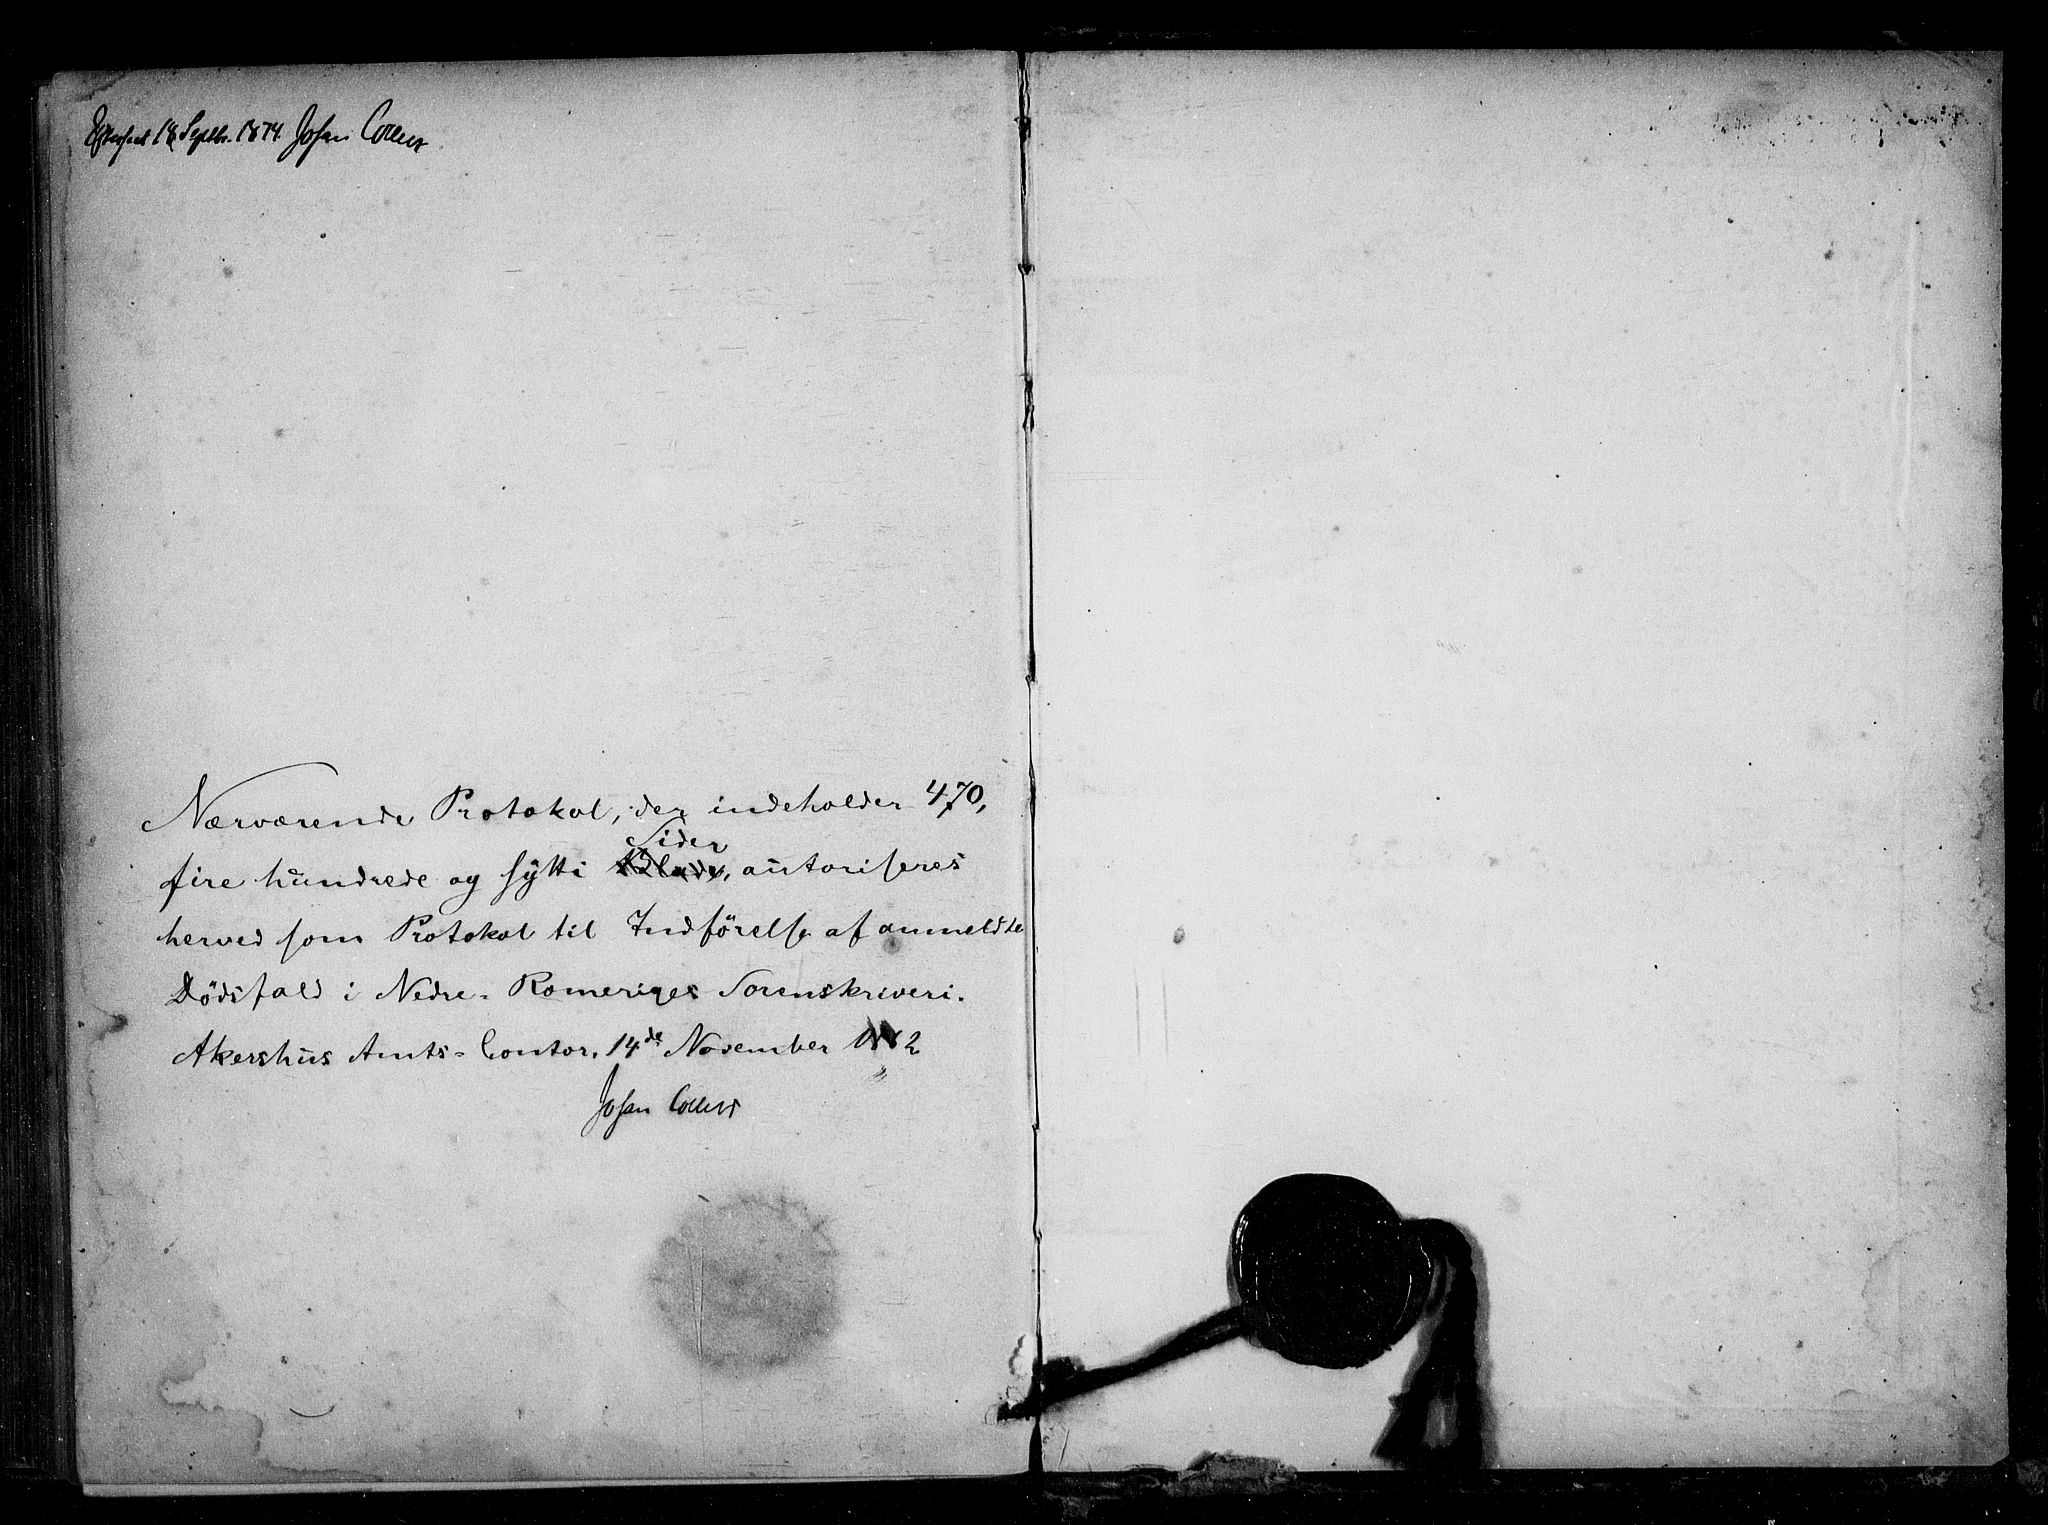 Efterseet 18 Septbr. 1874. Johan Collett
Nærværende Protokol, der indeholder 470,
Sider
fire hundrede og sytti Blade, autoriseres
herved som Protokol til Indförelse af anmeldte
Dödsfald i Nedre-Romeriges Sorenskriveri.
Akershus Amts-Contor, 14de November 1862
Johan Collett